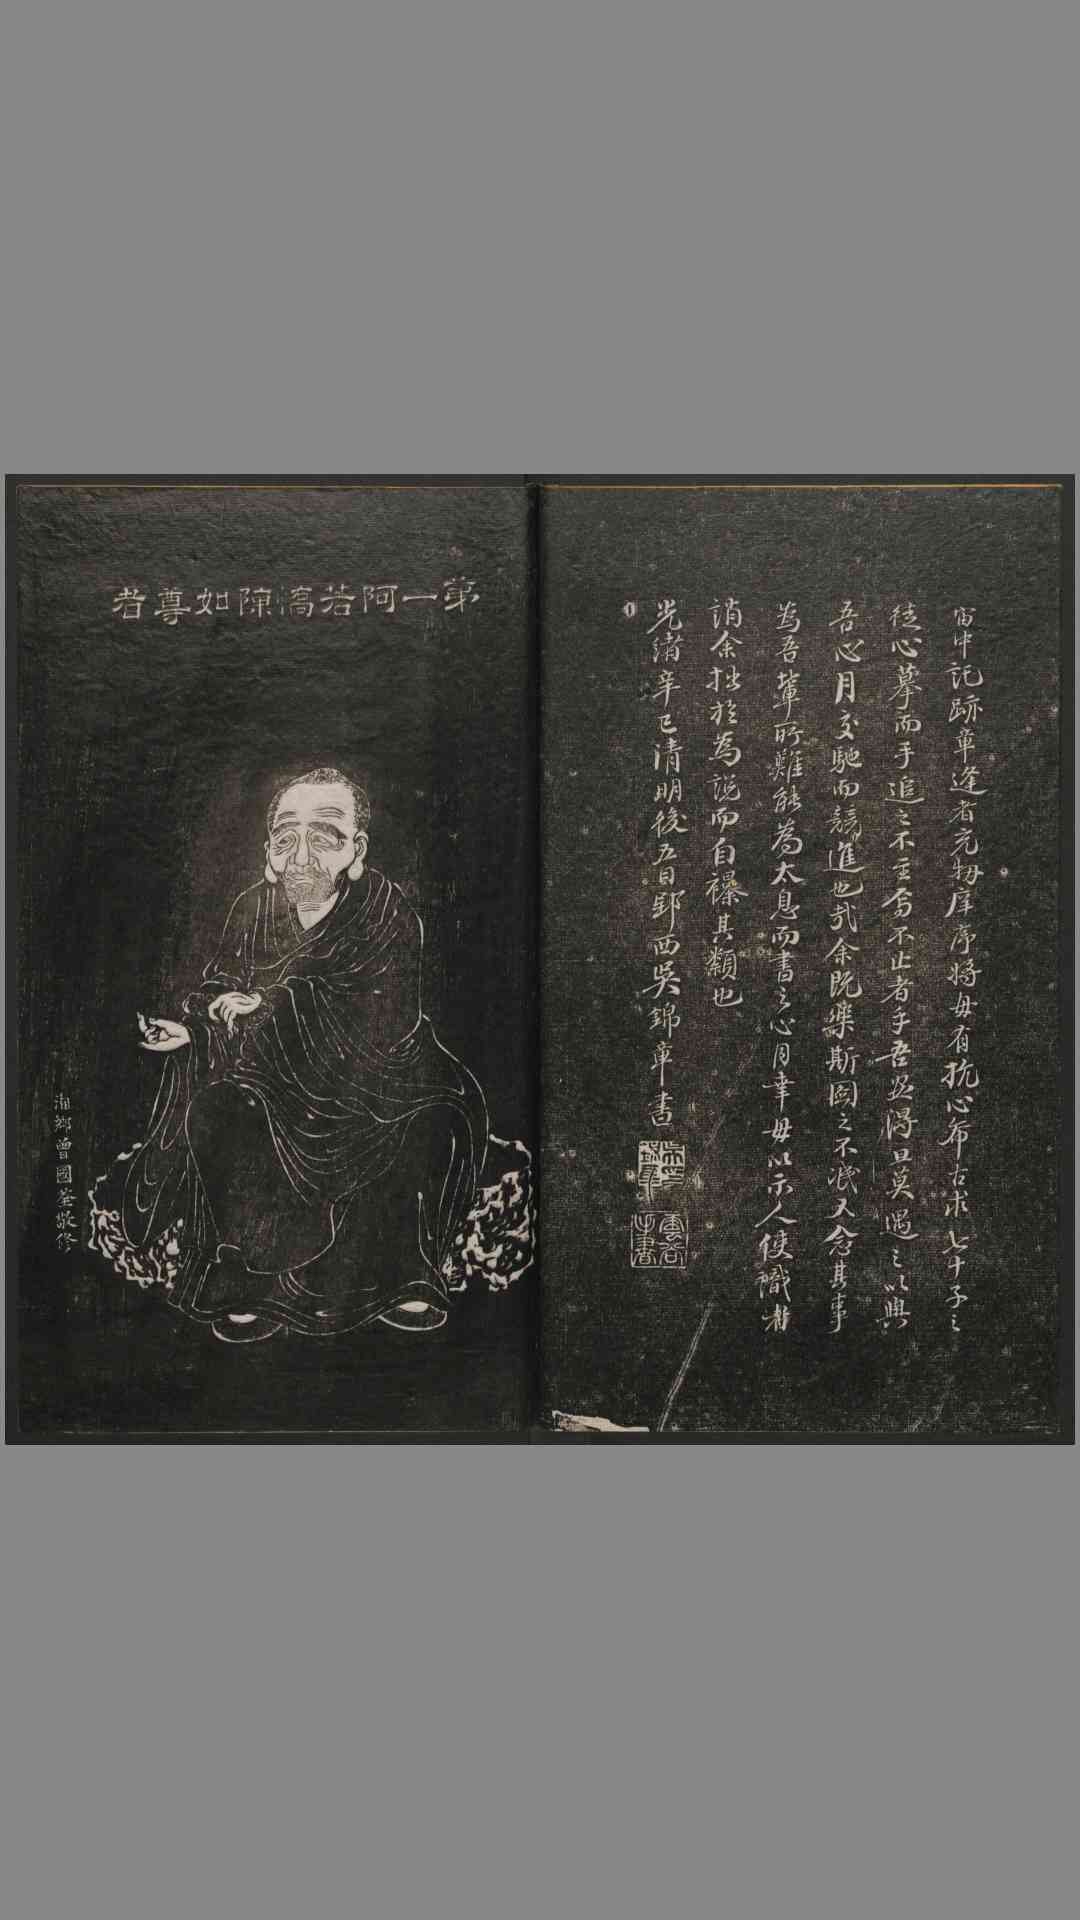 宙中記跡章逢者充牣庠序將毋有抗心希古求七十子之
徒心摹而手追之不至焉不止者乎吾盖得旦莫遇之以與
吾心月交馳而競進也哉余既樂斯圖之不泯又念其事
為吾輩所難能為太息而書之心月幸毋以示人使識者
誚余拙於為說而自襮其纇也
光緒辛巳清明後五日鄂西吳錦章書
第一阿若憍陳如尊者
湘鄉曾國荃敬修